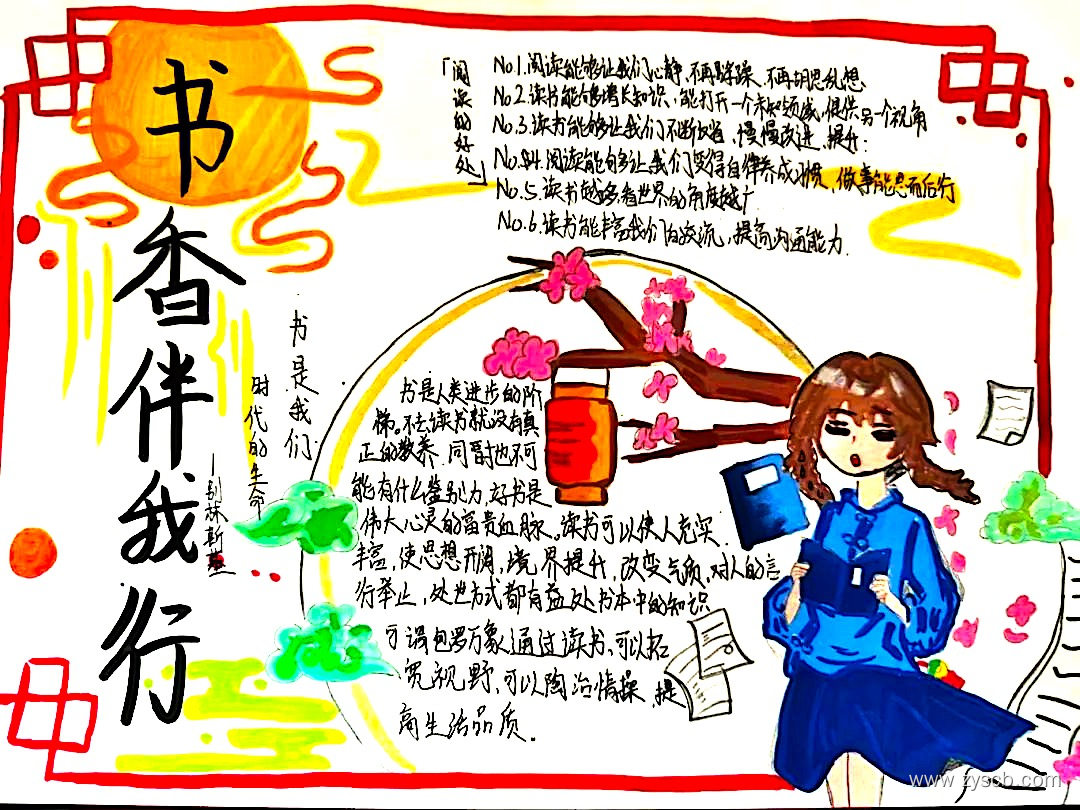 书香伴我行
「阅读的好处」
No.1.阅读能够让我们心静,不再浮躁、不再胡思乱想
No.2.读书能够增长知识,能打开一个未知领域,提供另一个视角
No.3.读书能够让我们不断反省,慢慢改进,提升;
No.4.阅读能够让我们变得自律养成习惯,做事能思而后行
No.5.读书越多看世界的角度越广
No.6.读书能丰富我们的交流,提高沟通能力.
书是我们
时代的生命
—别林斯基
书是人类进步的阶
梯。不去读书就没有真
正的教养.同时也不可
能有什么鉴别力.好书是
伟大心灵的富贵血脉。读书可以使人充实.
丰富,使思想开阔,境界提升,改变气质,对人的言
行举止,处世方式都有益处书本中的知识
可谓包罗万象通过读书,可以拓
宽视野,可以陶冶情操,提
高生活品质.
www.zyscb.com